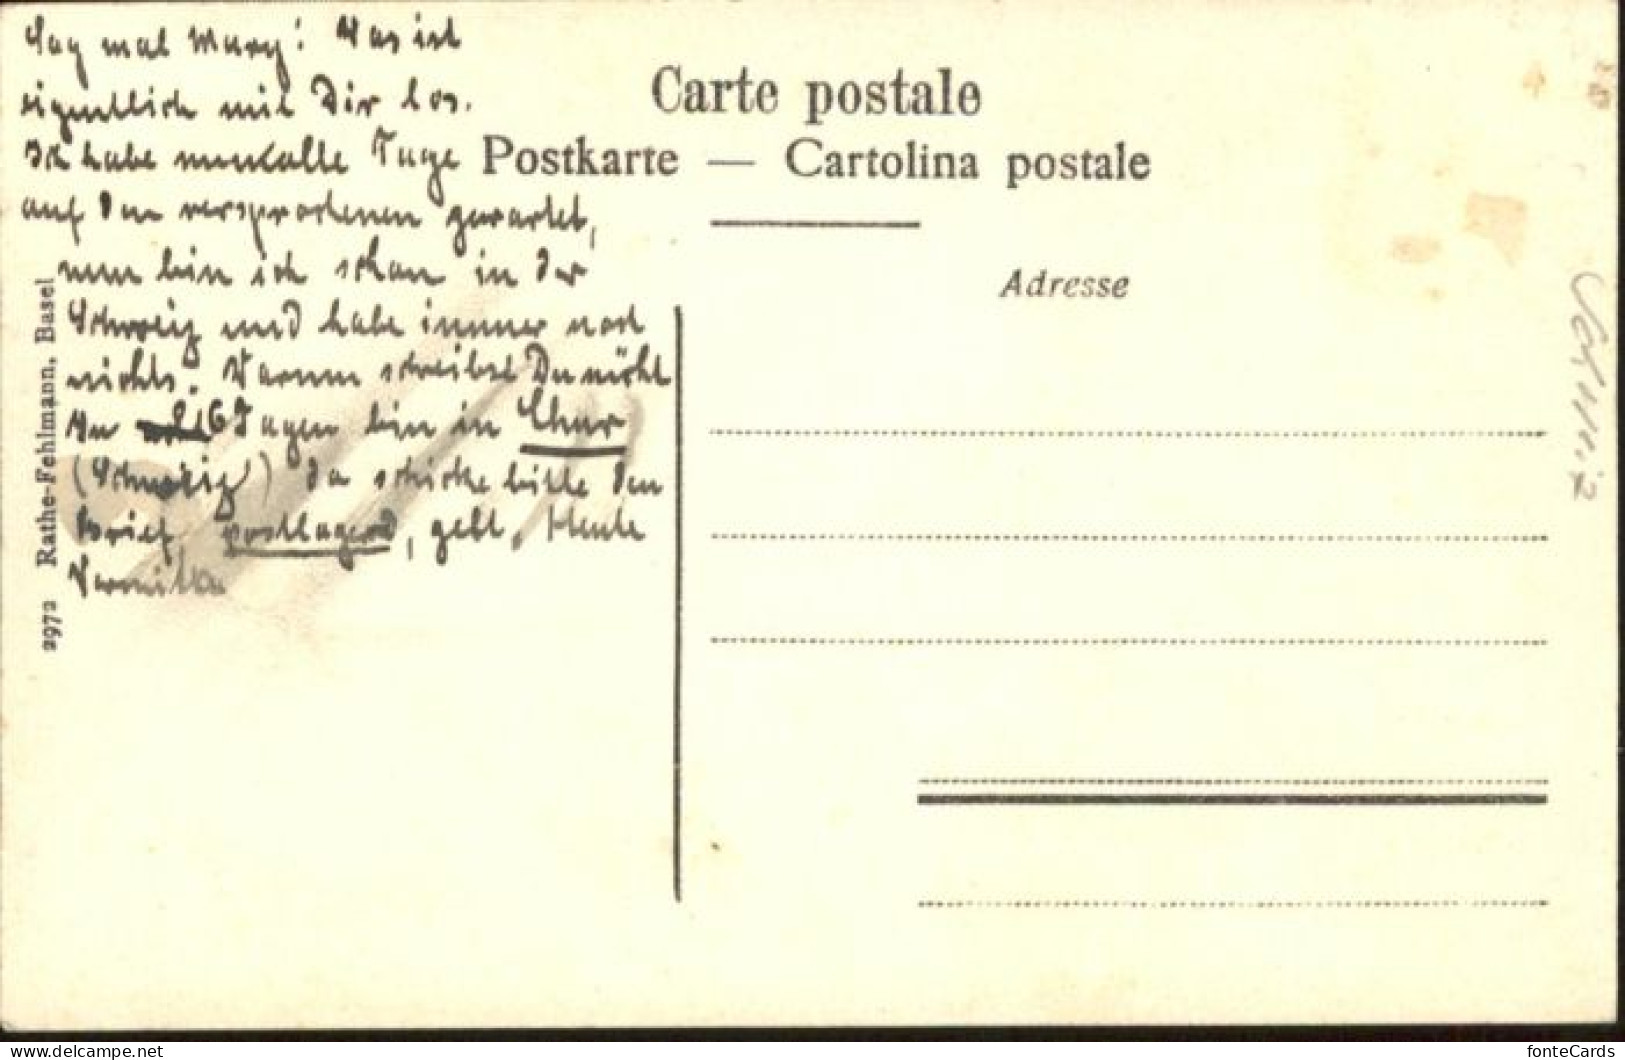 Sag mal Mary! Was ist
eigentlich mit Dir los.
Ich habe nun alle Tage
auf den versprochenen gewartet,
nun bin ich schon in der
Schweiz und habe immer noch
nichts. Warum schreibst Du nicht
In 6 Tagen bin in Chur
(Schweiz) da schicke bitte den
Brief postlagernd, gell. Heute
Carte postale
Postkarte — Cartolina postale
Adresse
2972 Rathe-Fehlmann, Basel
fonteCards